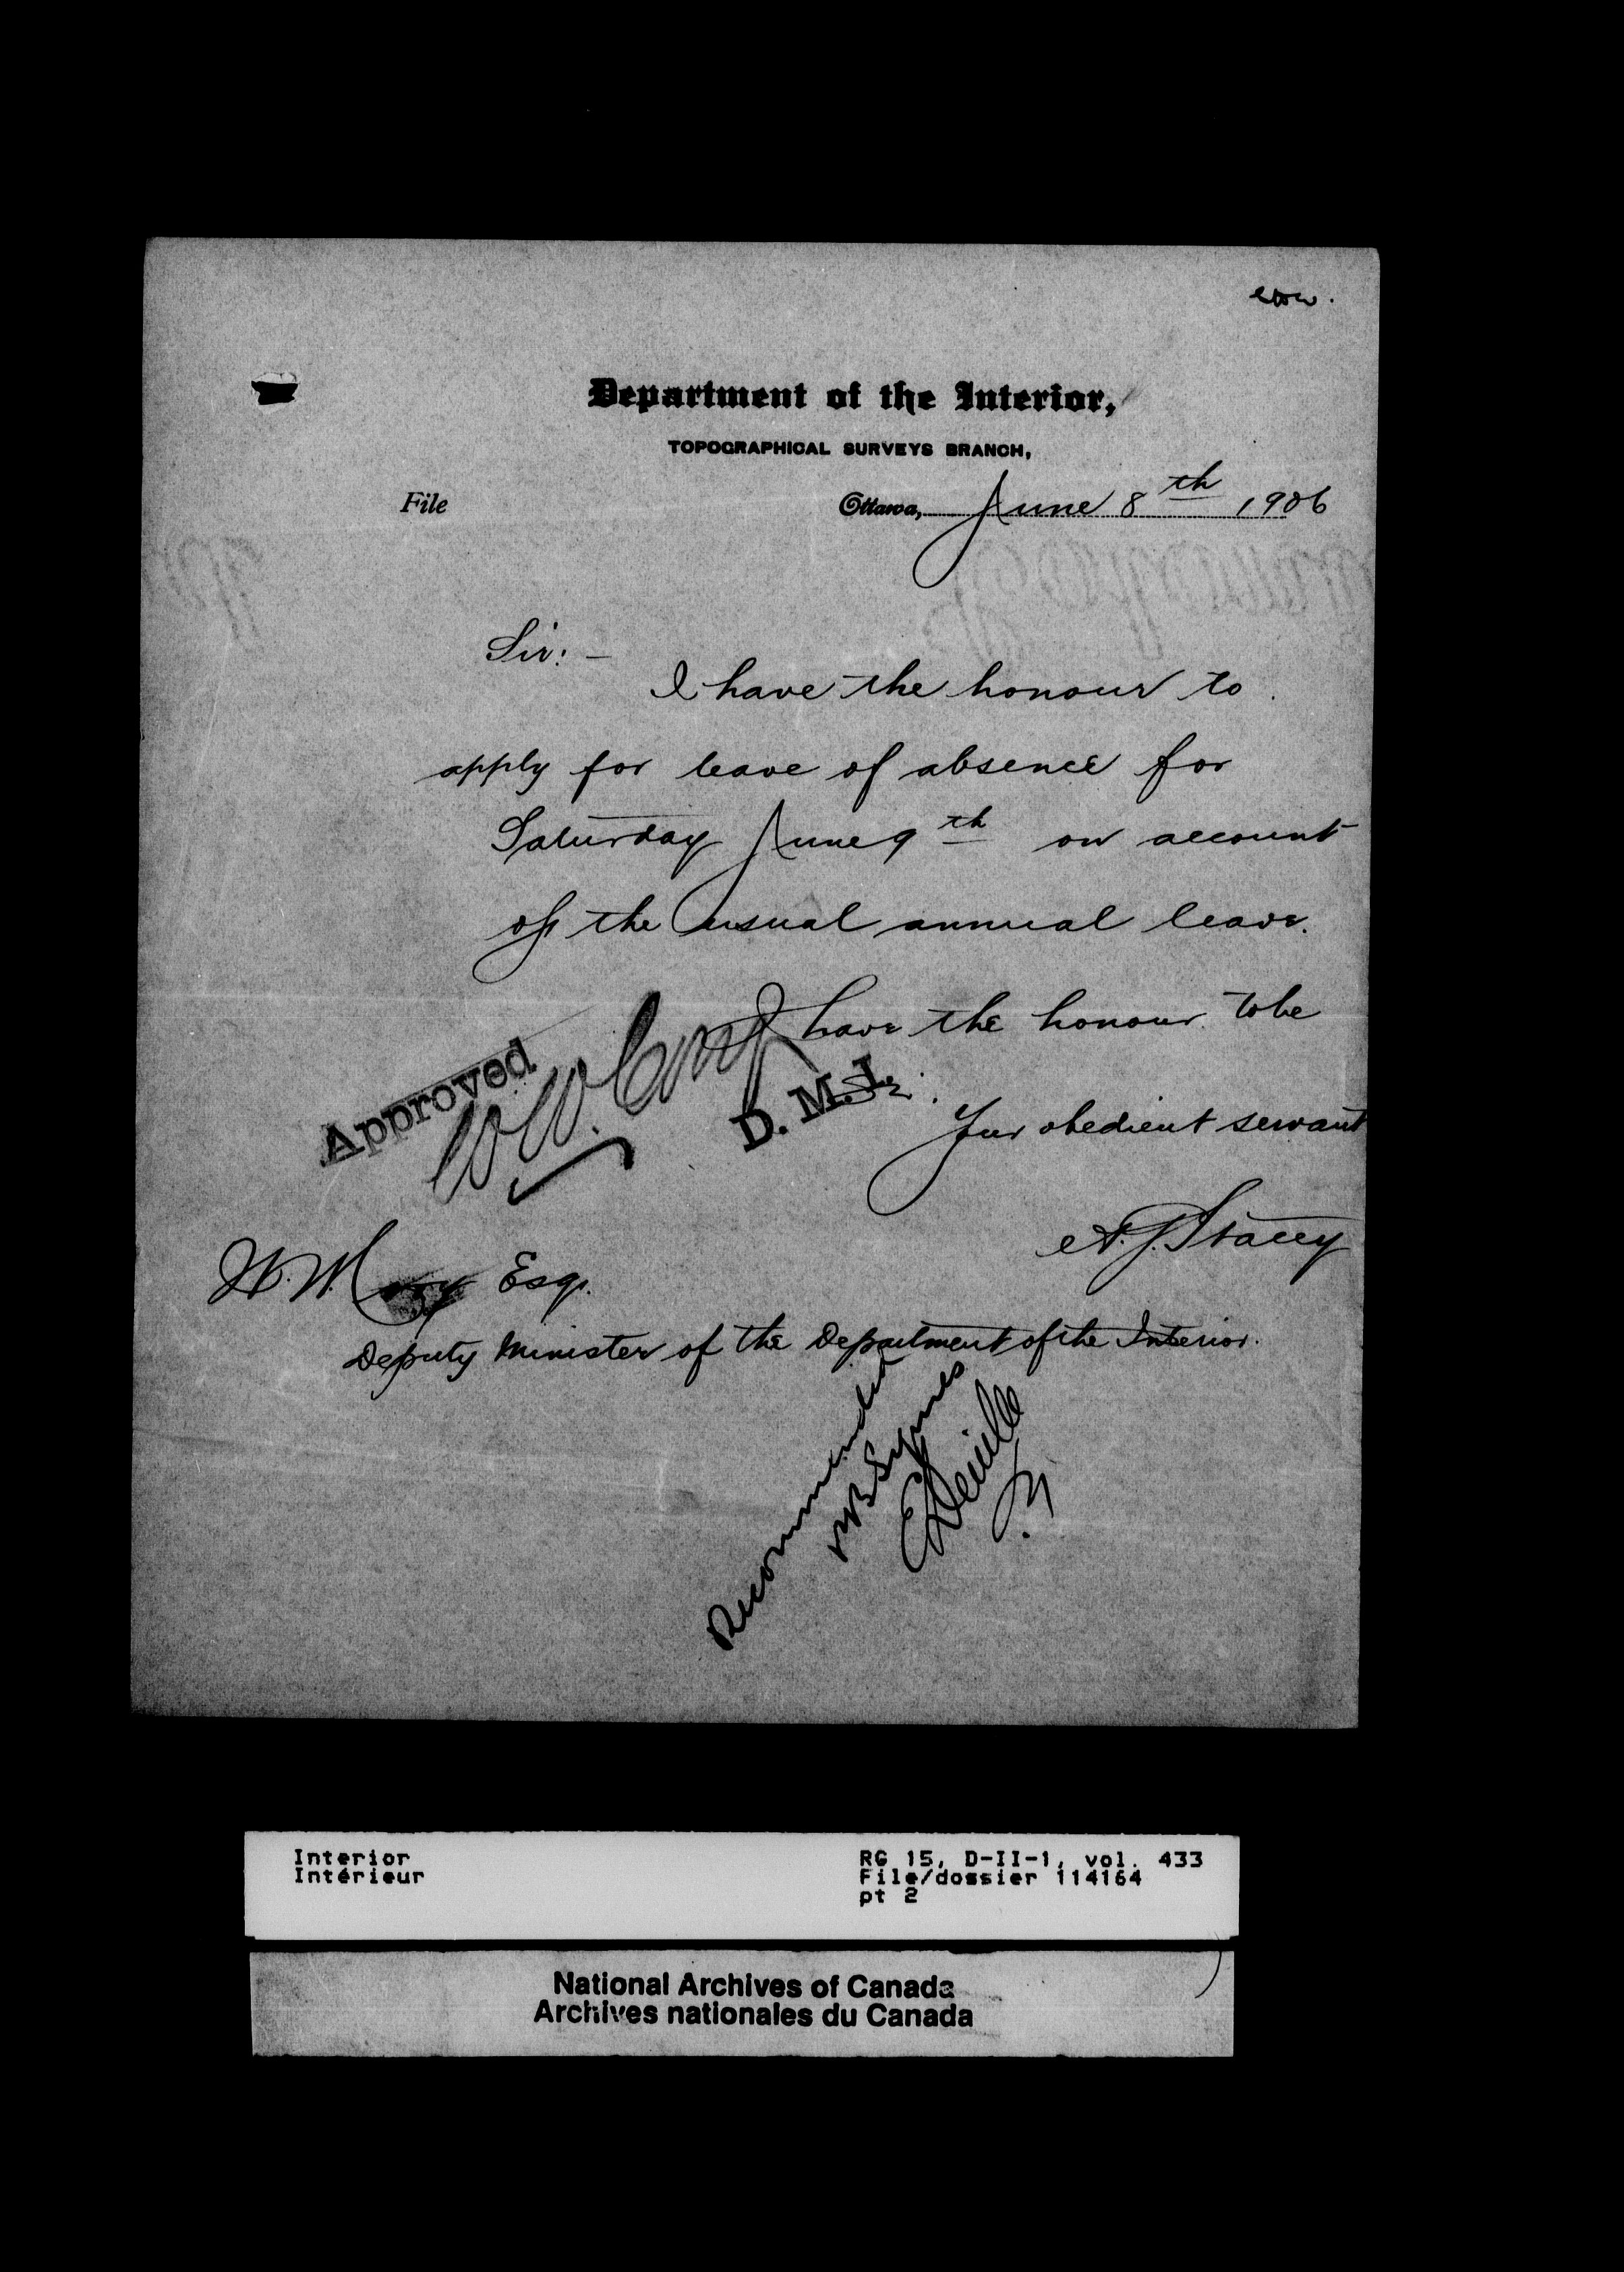 Department of the Interior,
TOPOGRAPHICAL SURVEYS BRANCH,
File
Ottawa, June 8th 1906
Sir: –
I have the honour to
apply for leave of absence for
Saturday June 9th on account
of the usual annual leave.
I have the honour to be
Sir.
Your obedient servant
A. J. Stacey
Approved
W. W. Cory
D. M. I.
W. W. Cory Esq.
Deputy Minister of the Department of the Interior.
Recommended
PB Symes
E Deville
Interior
Intérieur
RG 15, D-II-1, vol. 433
File/dossier 114164
pt 2
National Archives of Canada
Archives nationales du Canada